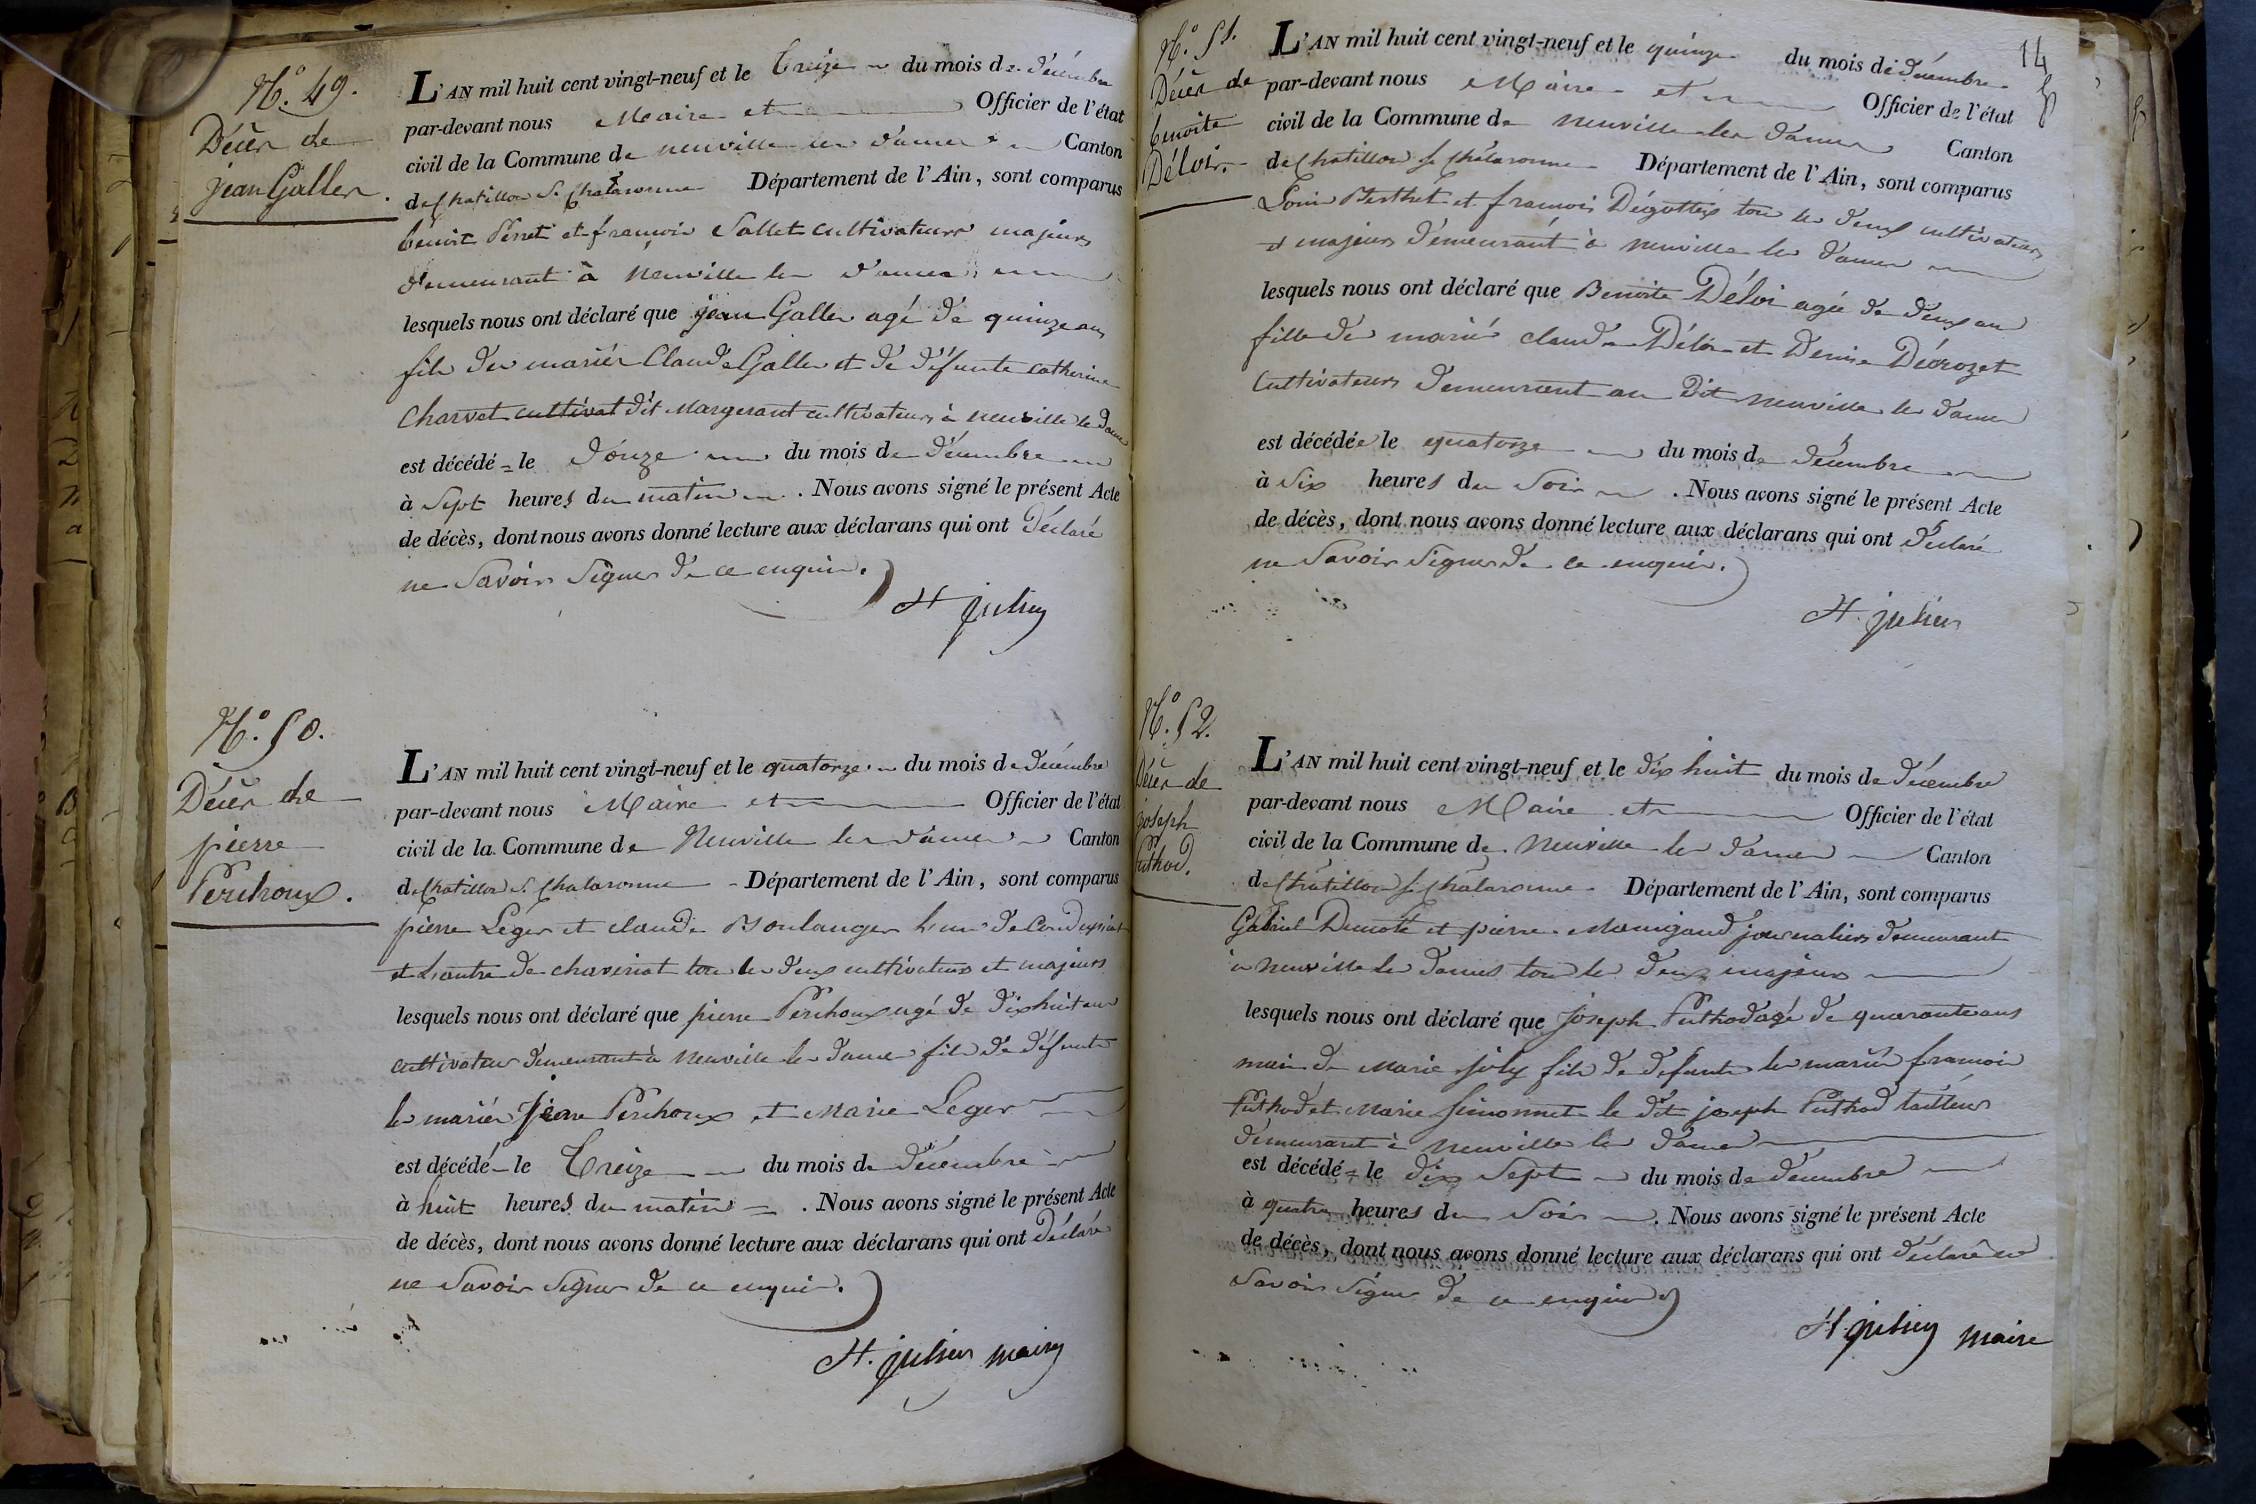 N.o 49.
Décès de
jean Galler.
L'AN mil huit cent vingt-neuf et le Treize du mois de décembre
par-devant nous Maire et Officier de l'état
civil de la Commune de neuville les dames Canton
de Chatillon S. Chalaronne Département de l'Ain, sont comparus
benoit Perret et francois Sallet cultivateurs majeurs
demeurant à Neuville les dames
lesquels nous ont déclaré que jean Galler agé de quinze ans
fils des mariés Claude Galler et de défunte catherine
Charvet cultivat dit Margerant cultivateurs à neuville les Dames
est décédé le douze du mois de décembre
à Sept heures du matin. Nous avons signé le présent Acte
de décès, dont nous avons donné lecture aux déclarans qui ont déclaré
ne Savoir Signer de ce enquis.
H julien
N.o 50.
Décès de
pierre
Perchoux.
L'AN mil huit cent vingt-neuf et le quatorze du mois de décembre
par-devant nous Maire et Officier de l'état
civil de la Commune de Neuville les dames Canton
de Chatillon S. Chalaronne Département de l'Ain, sont comparus
pierre Léger et claude Boulanger l'un de Condeyssiat
et L'autre de chaveriat tous les deux cultivateurs et majeurs
lesquels nous ont déclaré que pierre Perchoux agé de dix huit ans
cultivateur demeurant à Neuville les dames fils de défunts
les mariés pierre Perchoux et Marie Leger
est décédé le Treize du mois de décembre
à huit heures du matin. Nous avons signé le présent Acte
de décès, dont nous avons donné lecture aux déclarans qui ont déclaré
ne Savoir Signer de ce enquis.
H. julien maire
14
N.o 51.
Décès de
benoite
Déloir.
L'AN mil huit cent vingt-neuf et le quinze du mois de décembre
par-devant nous Maire et Officier de l'état
civil de la Commune de Neuville les dames Canton
de Chatillon S. Chalaronne Département de l'Ain, sont comparus
Louis Berthet et francois Dégottex tous les deux cultivateurs
et majeurs demeurant à neuville les dames
lesquels nous ont déclaré que Benoite Déloi agée de deux ans
fille des mariés claude Déloi et Denise Décrozet
cultivateurs demeurant au dit neuville les dames
est décédée le quatorze du mois de décembre
à Six heures du Soir. Nous avons signé le présent Acte
de décès, dont nous avons donné lecture aux déclarans qui ont déclaré
ne Savoir Signer de ce enquis.
H. julien
N.o 52.
Décès de
joseph
Puthod.
L'AN mil huit cent vingt-neuf et le dix huit du mois de décembre
par-devant nous Maire et Officier de l'état
civil de la Commune de Neuville les dames Canton
de Chatillon S. Chalaronne Département de l'Ain, sont comparus
Gabriel et pierre journaliers demeurant
à neuville les dames tous les deux majeurs
lesquels nous ont déclaré que joseph Puthod agé de quarante ans
mari de Marie joly fils de défunts les mariés francois
Puthod et Marie Simonnet le dit joseph Puthod tailleur
demeurant à Neuville les dames
est décédé le dix Sept du mois de décembre
à quatre heures du Soir. Nous avons signé le présent Acte
de décès, dont nous avons donné lecture aux déclarans qui ont déclaré ne
Savoir Signer de ce enquis
H. julien maire